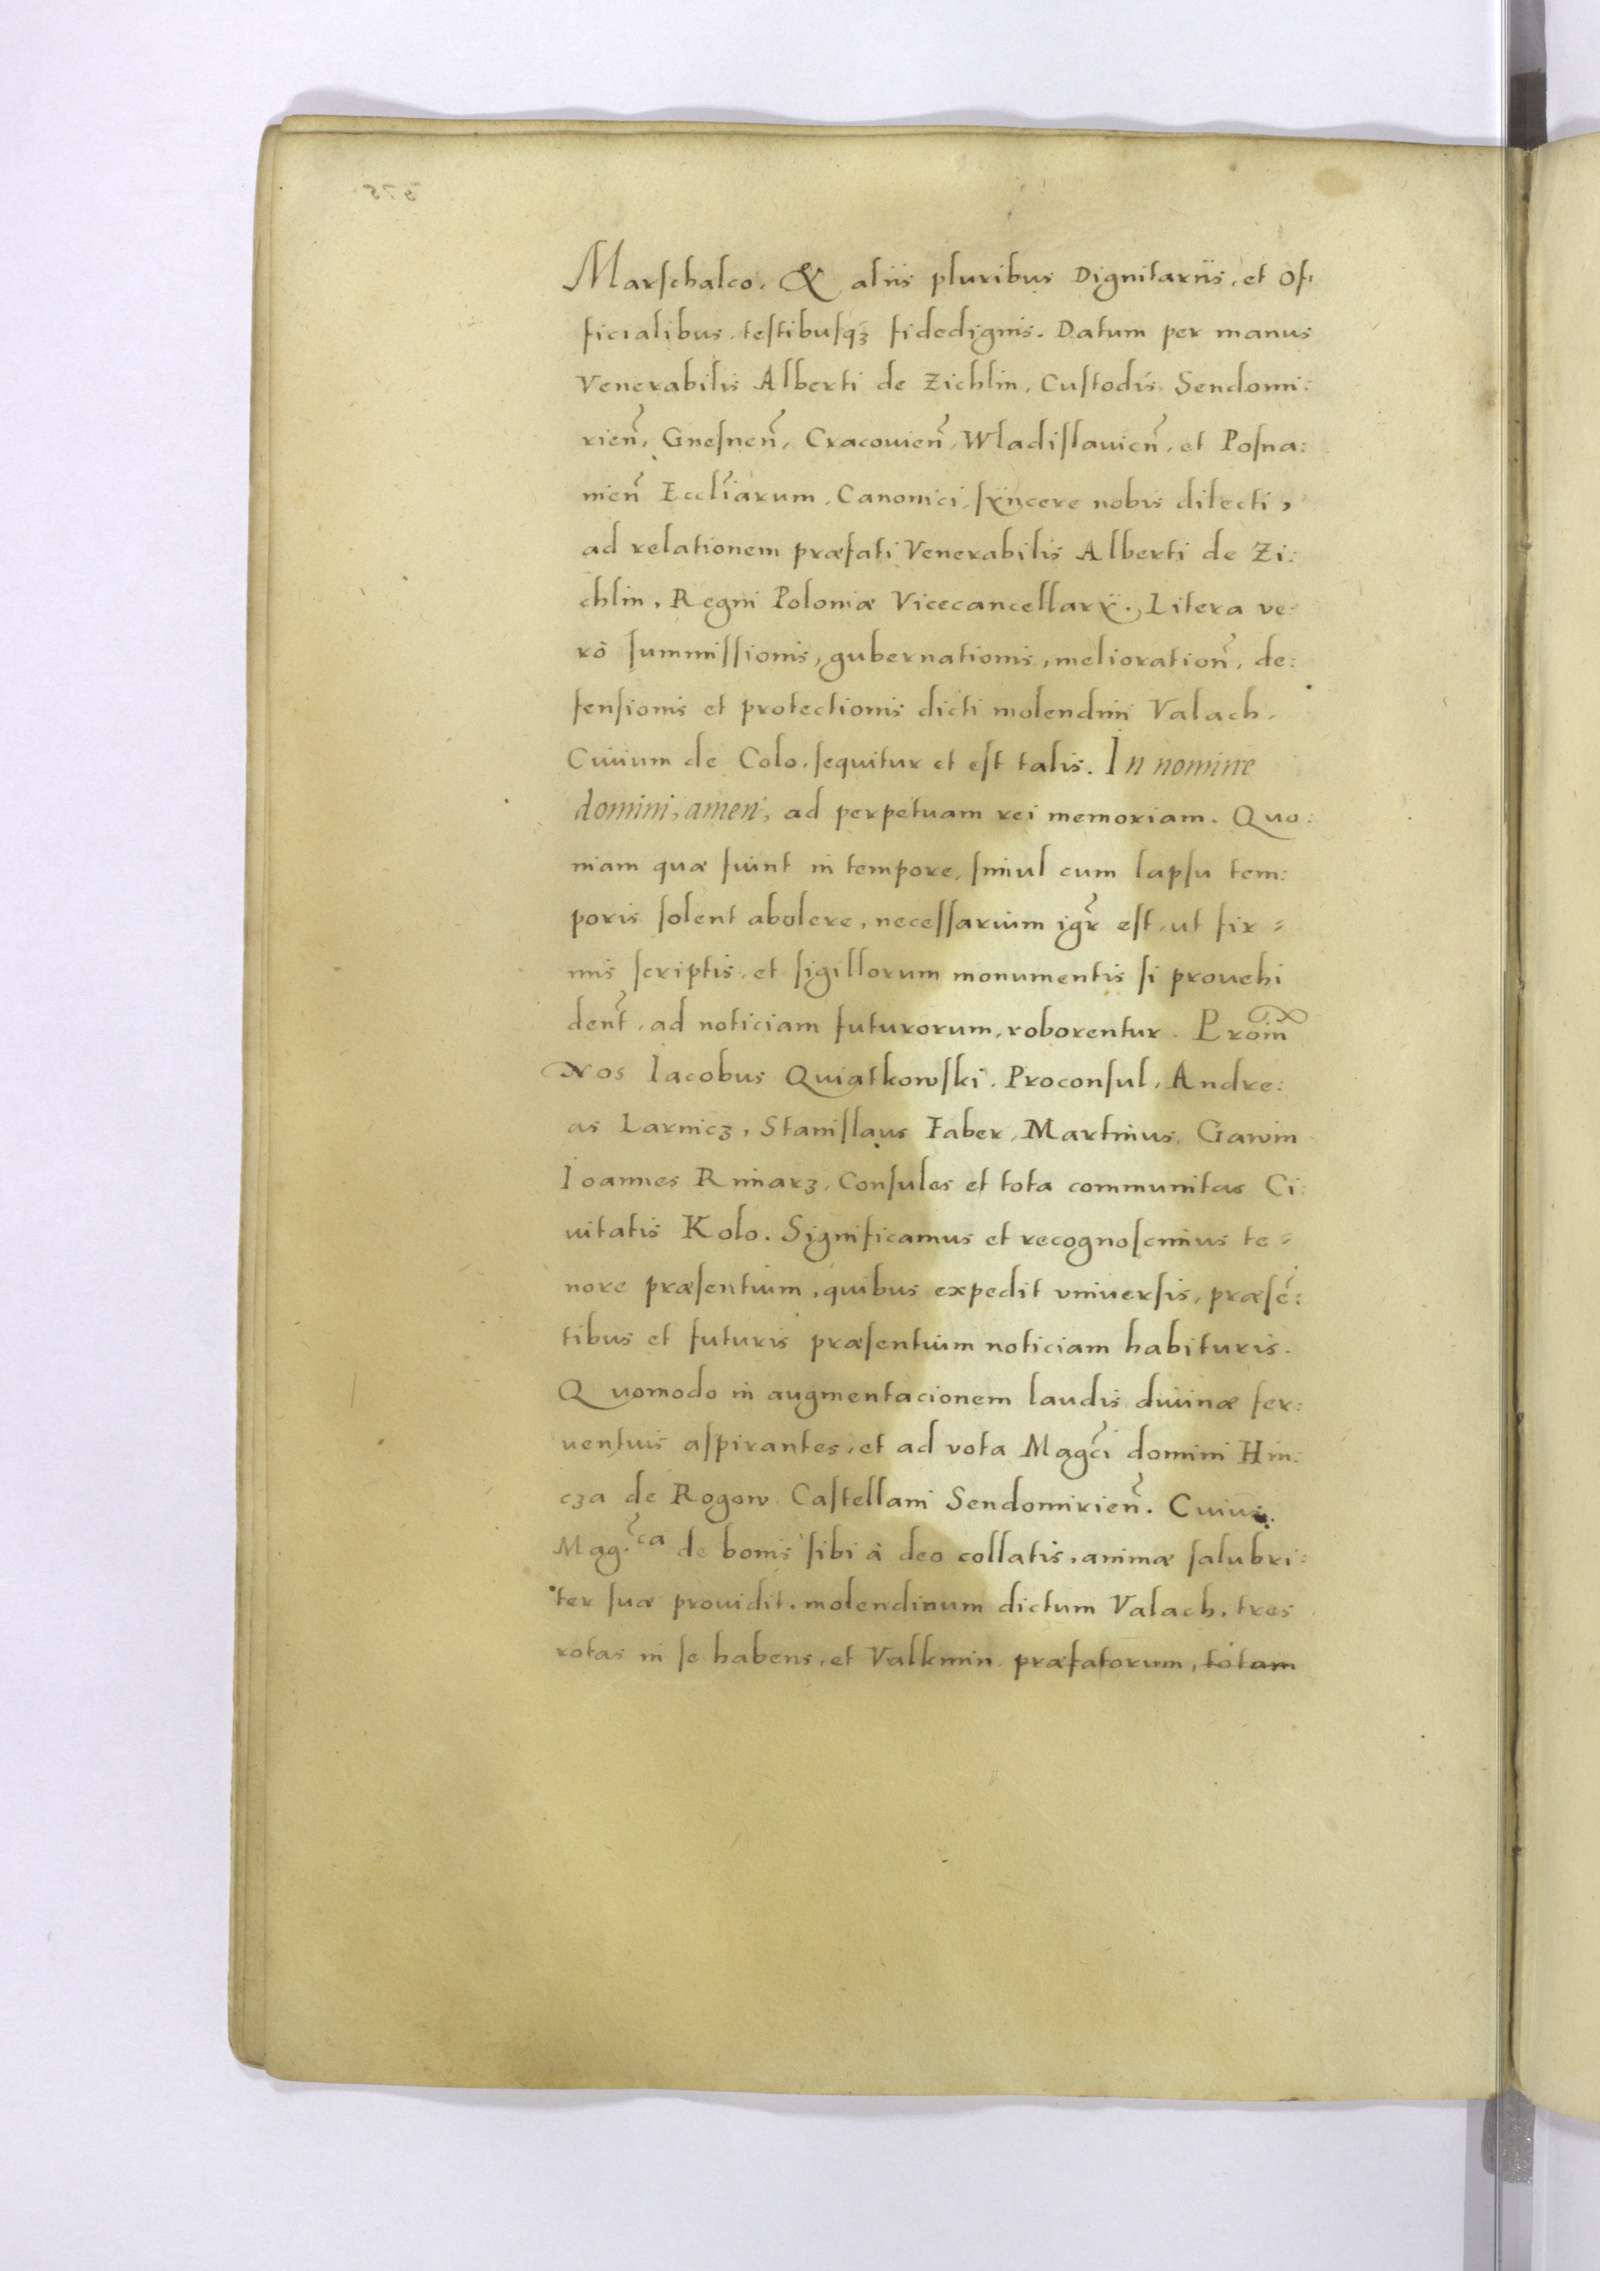 Marſchalco, & aliis pluribus Dignitariis, et Of,
ficialibus, teſtibuſqꝫ fidedignis. Datum per manus
Venerabilis Alberti de Zichlin, Cuſtodis Sendomi:
rien̄, Gneſnen̄, Cracouien̄, Wladiſlauien̄, et Poſna:
nien̄ Eccl̄iarum, Canonici, ſÿncere nobis dilecti,
ad relationem præfati Venerabilis Alberti de Zi:
chlin, Regni Poloniæ Vicecancellarÿ. Litera ve:
rò ſummiſſionis, gubernationis, melioration̄, de:
fenſionis et protectionis dicti molendini Valach,
Ciuium de Colo, ſequitur et eſt talis. In nomine
domini, amen, ad perpetuam rei memoriam. Quo:
niam quæ fiunt in tempore, ſimul cum lapſu tem:
poris ſolent abolere, neceſſarium igr̄ eſt, ut fir=
mis ſcriptis, et ſigillorum monumentis ſi prouehi
dent̄, ad noticiam futurorum, roborentur. Proin̄
Nos Iacobus Quiatkowſki, Proconſul, Andre:
as Larnicꝫ, Staniſlaus Faber, Martinus, Gawin
Ioannes Rimarꝫ, Conſules et tota communitas Ci:
uitatis Kolo. Significamus et recognoſcimus te=
nore præſentium, quibus expedit vniuerſis, præſē:
tibus et futuris præſentium noticiam habituris.
Quomodo in augmentacionem laudis diuinæ fer:
uentius aſpirantes, et ad vota Magc̄i domini Hin:
cꝫa de Rogow Caſtellani Sendomirien̄. Cuius
Mag.ca de bonis ſibi à deo collatis, animæ ſalubri:
ter ſuæ prouidit, molendinum dictum Valach, tres
rotas in ſe habens, et Valkmin præfatorum, totam